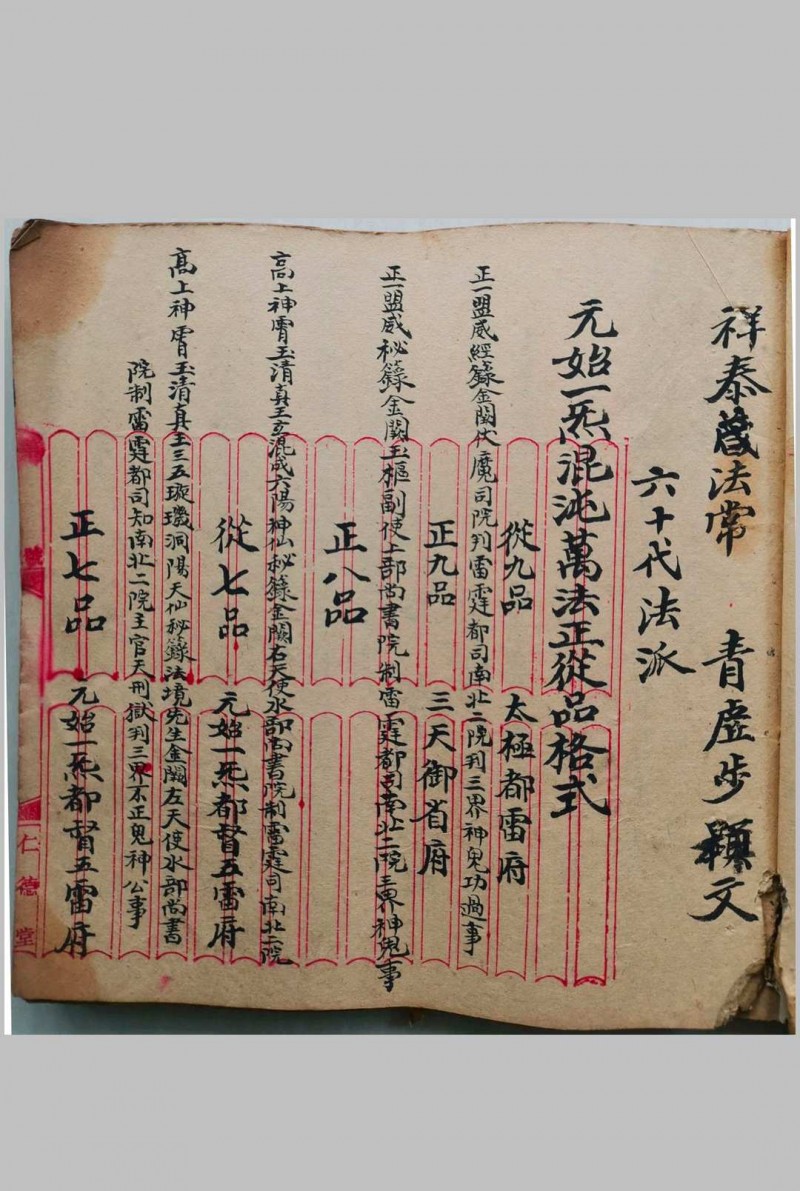 祥泰啟法常 青虛步顯文
六十代法派
元始一炁混沌萬法正從品格式
從九品 太極都雷府
正一盟威經籙金闕伏魔司院判雷霆都司南北二院判三界神鬼功過事
正九品 三天御省府
正一盟威秘籙金闕玉樞副使上部尚書院制雷霆都司南北二院三界神鬼事
正八品
高上神霄玉清真王玄混成六陽神仙秘籙金闕右天使水部尚書院制雷霆司南北二院
從七品 元始一炁都督五雷府
高上神霄玉清真王三五璇璣洞陽天仙秘籙法境先生金闕左天使水部尚書
院制雷霆都司知南北二院主官天刑獄判三界不正鬼神公事
正七品 元始一炁都督五雷府
號
仁德堂